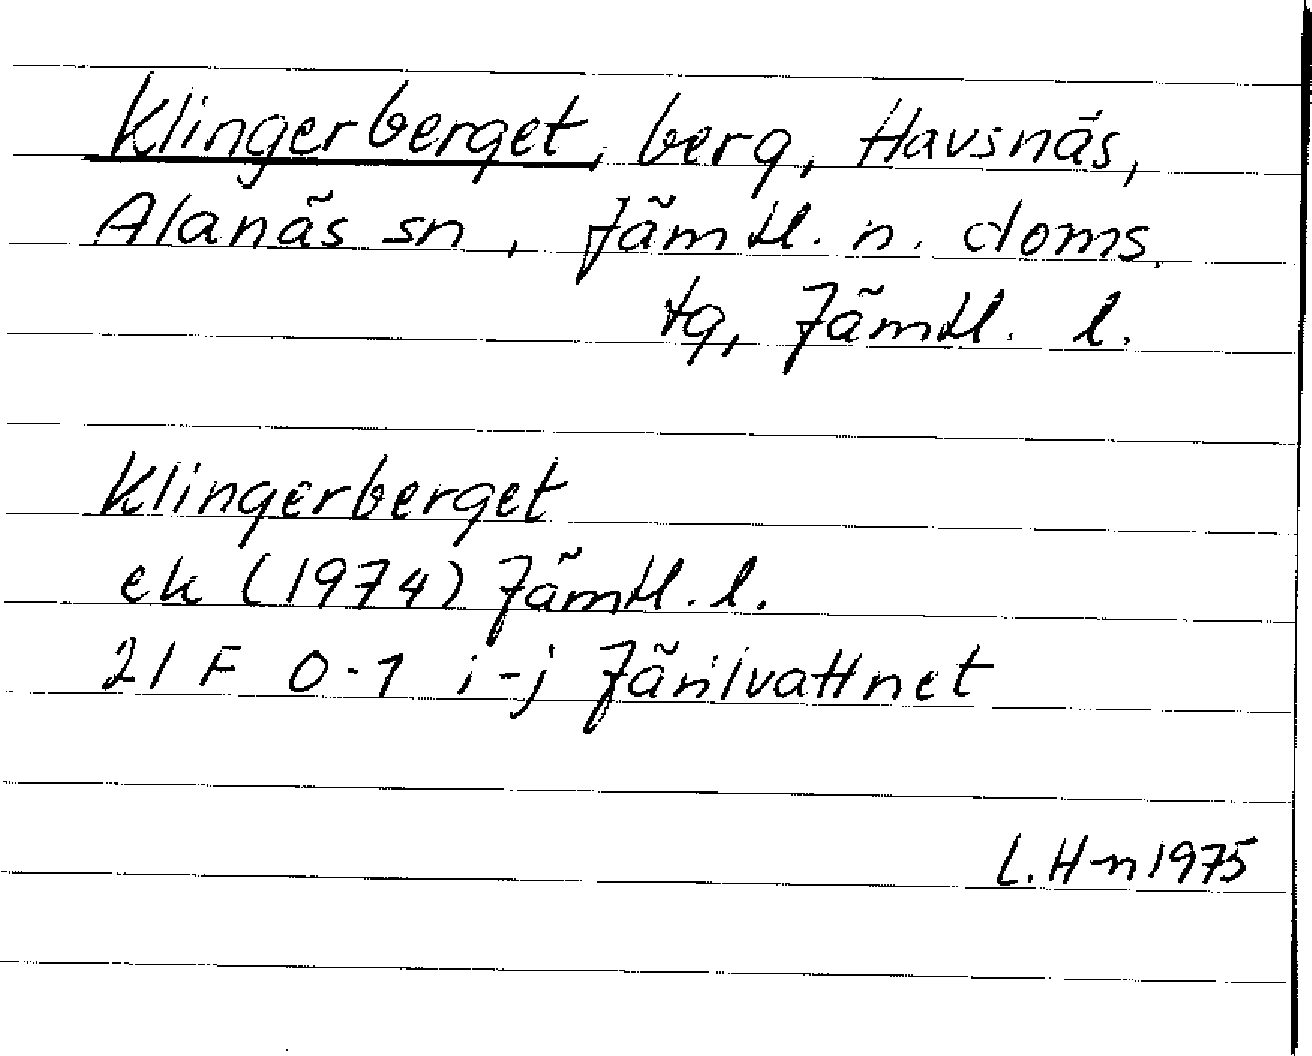 Klingerberget, berg, Havsnäs,
Alanäs sn, Jämtl. n. doms.
tg, Jämtl. l.
Klingerberget
ek (1974) Jämtl. l.
21 F 0-1 i-j Järilvattnet
L. H-n 1975